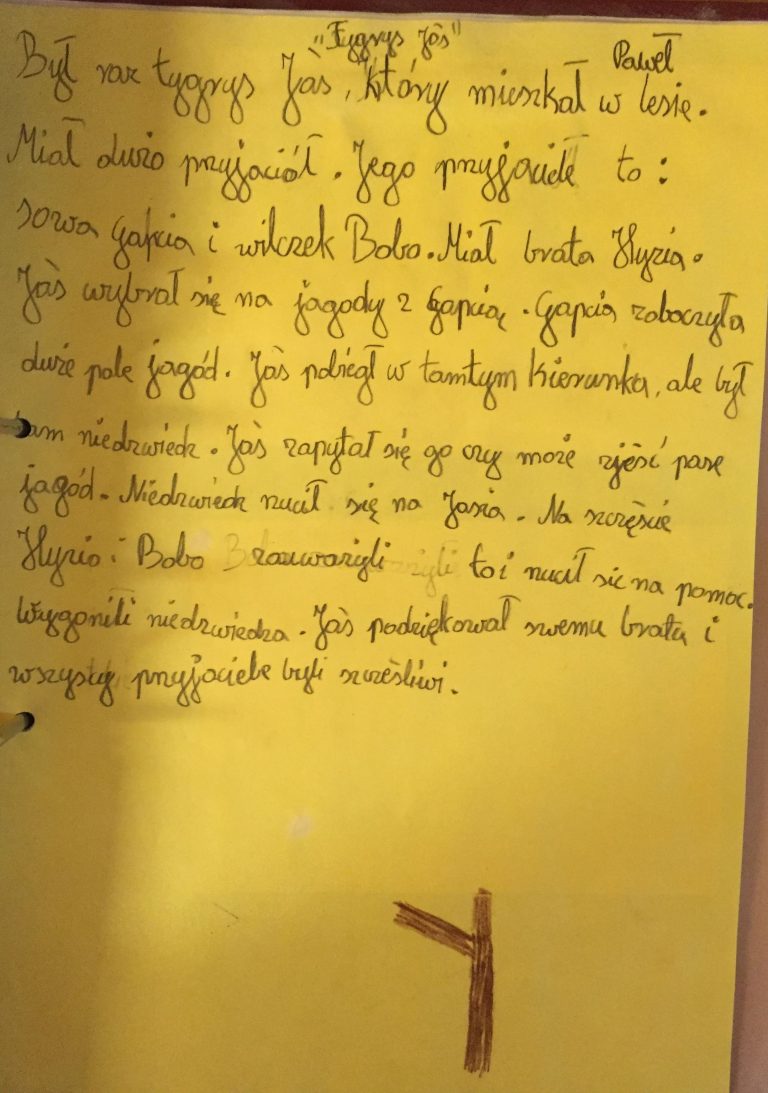 "Tygrys Jaś"
Paweł
Był raz tygrys Jaś, który mieszkał w lesie.
Miał dużo przyjaciół. Jego przyjaciele to:
sowa Gapcia i wilczek Bobo. Miał brata Hyzia.
Jaś wybrał się na jagody z Gapcią. Gapcia zoboczyła
duże pole jagód. Jaś pobiegł w tamtym kierunku, ale był
tam niedzwiedz. Jaś zapytał się go czy może zjeść parę
jagód. Niedzwiedz rzucił się na Jasia. Na szczęście
Hyzio i Bobo zauwarzyli to i rzucił sie na pomoc.
Wygonili niedzwiedza. Jaś podziękował swemu bratu i
wszyscy przyjaciele byli szcześliwi.